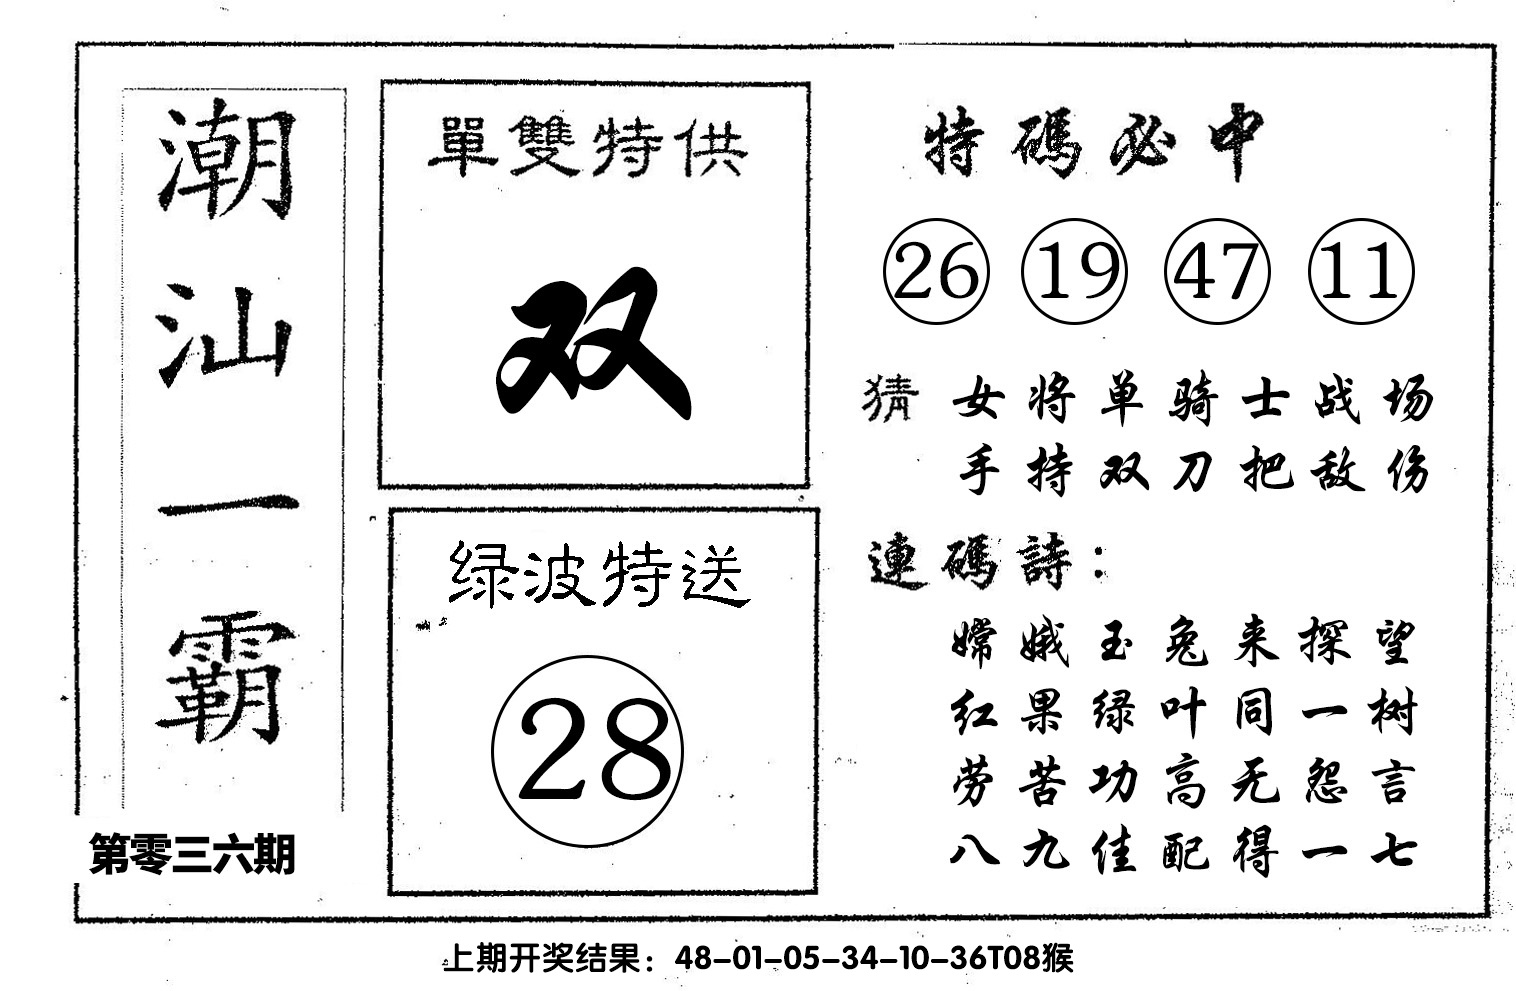 潮汕一霸
第零三六期
單雙特供
双
绿波特送
28
特碼必中
26 19 47 11
猜 女将单骑士战场
手持双刀把敌伤
連碼詩：
嫦娥玉兔来探望
红果绿叶同一树
劳苦功高无怨言
八九佳配得一七
上期开奖结果：48-01-05-34-10-36T08猴